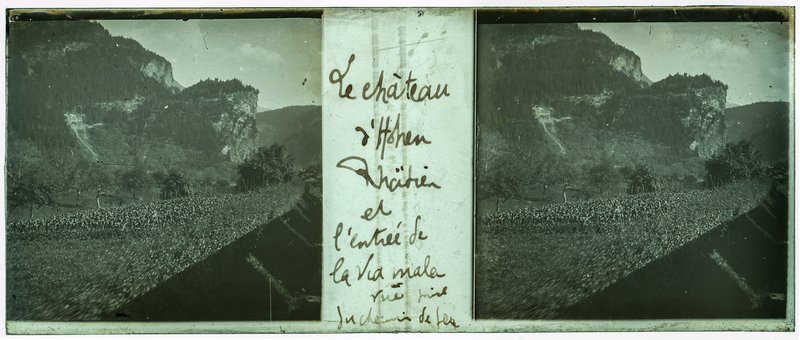 Le château
d'Hohen
Rhätien
et
l'entrée de
la Via mala
vue prise
du chemin de fer